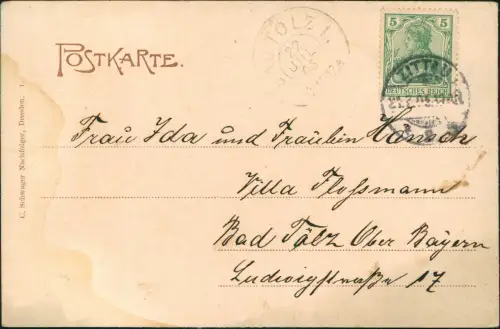 POSTKARTE.
TÖLZ 1.
5 5
DEUTSCHES REICH
ZITTAU
Frau Ida und Fräulein Hansch
Villa Flossmann
Bad Tölz Ober Bayern
Ludwigstraße 17
C. Schwager Nachfolger, Dresden. 1